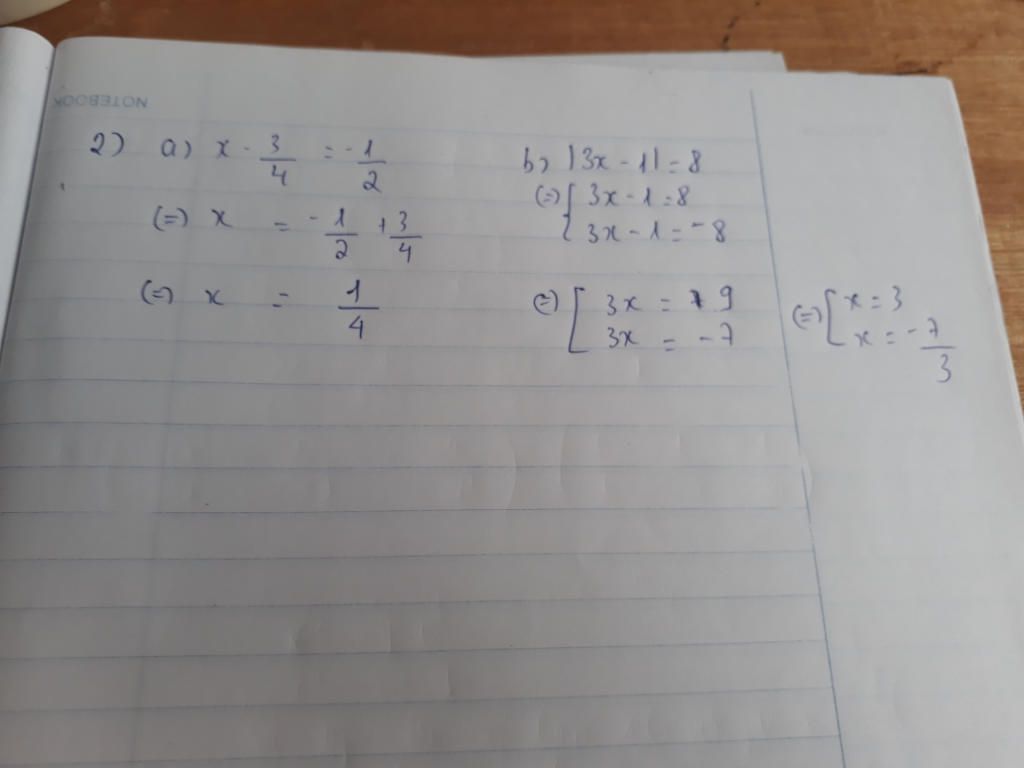 NOTEBOOK
2) a) x - 3/4 = -1/2
(=) x = -1/2 + 3/4
(=) x = 1/4
b, |3x - 1| = 8
(=) { 3x - 1 = 8
3x - 1 = -8
(=) [ 3x = 9
3x = -7
(=) [ x = 3
x = -7/3